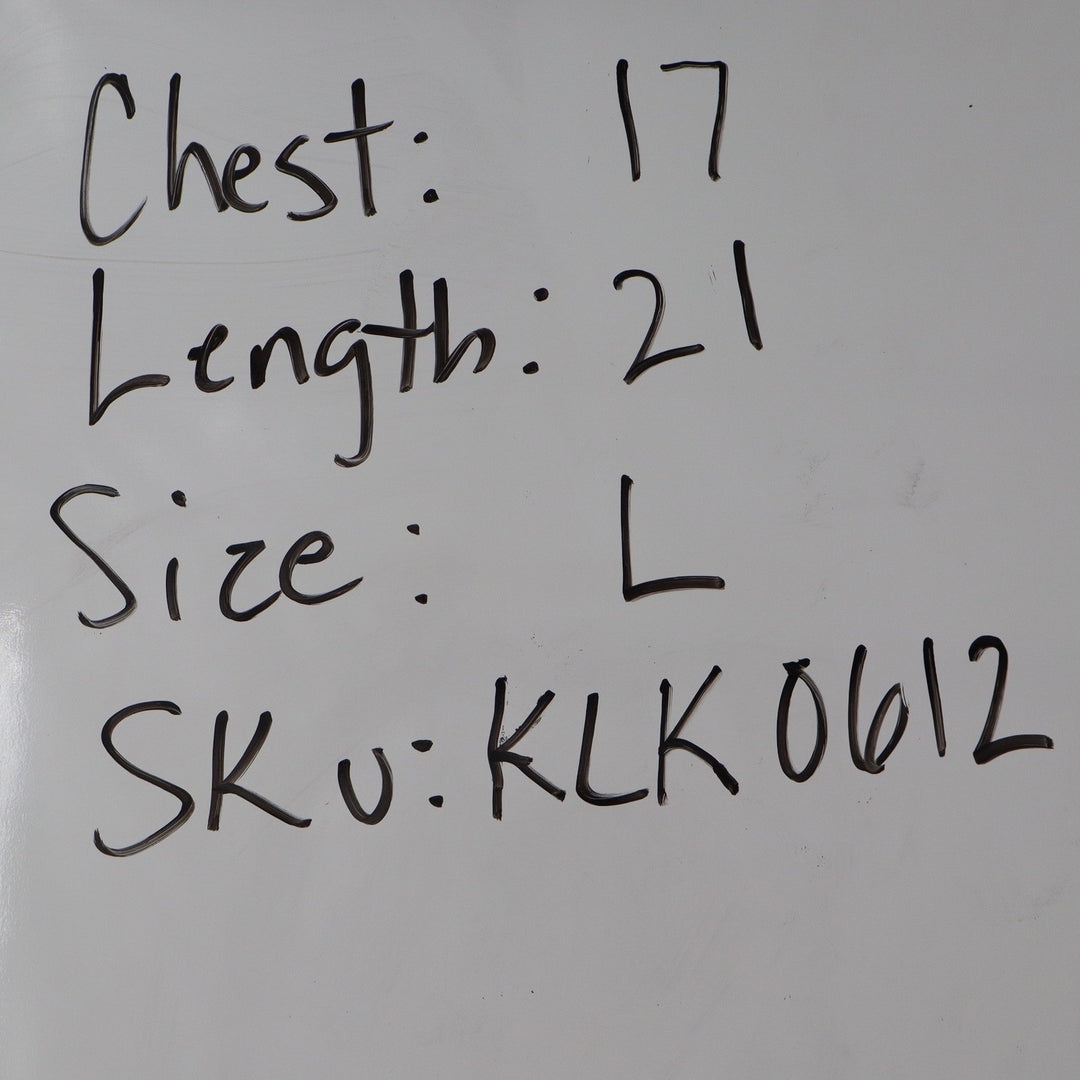 Chest: 17
Length: 21
Size: L
SKU: KLK0612